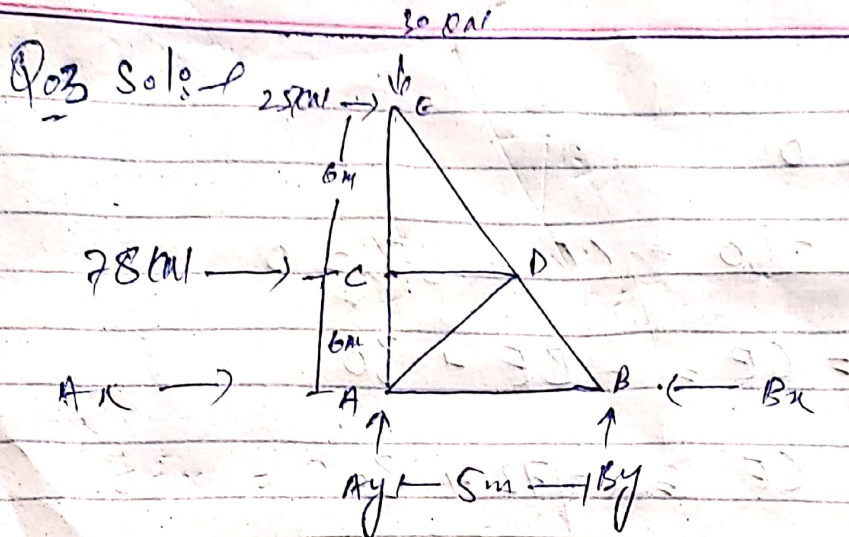 30 KN
Q03 Sol:-
25KN → E
6m
78KN → C D
6m
Ax → A B ← Bx
Ay 5m By